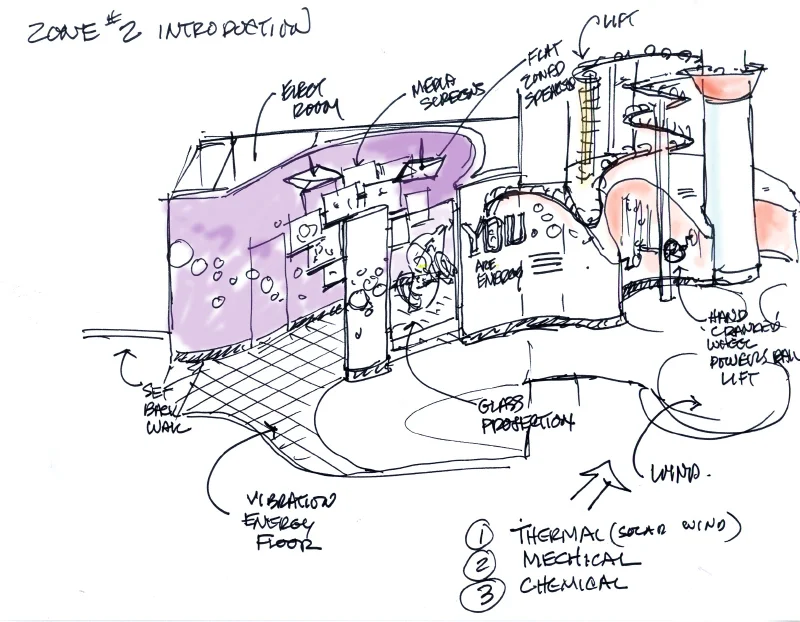 ZONE #2 INTRODUCTION
LIFT
FLAT
ZONED
SPEAKERS
MEDIA
SCREENS
ELECT
ROOM
YOU
ARE ENERGY
HAND
CRANKED
WHEEL
POWERS BALL
LIFT
SET
BACK
WALL
GLASS
PROJECTION
WIND.
VIBRATION
ENERGY
FLOOR
1 THERMAL (SOLAR WIND)
2 MECHICAL
3 CHEMICAL